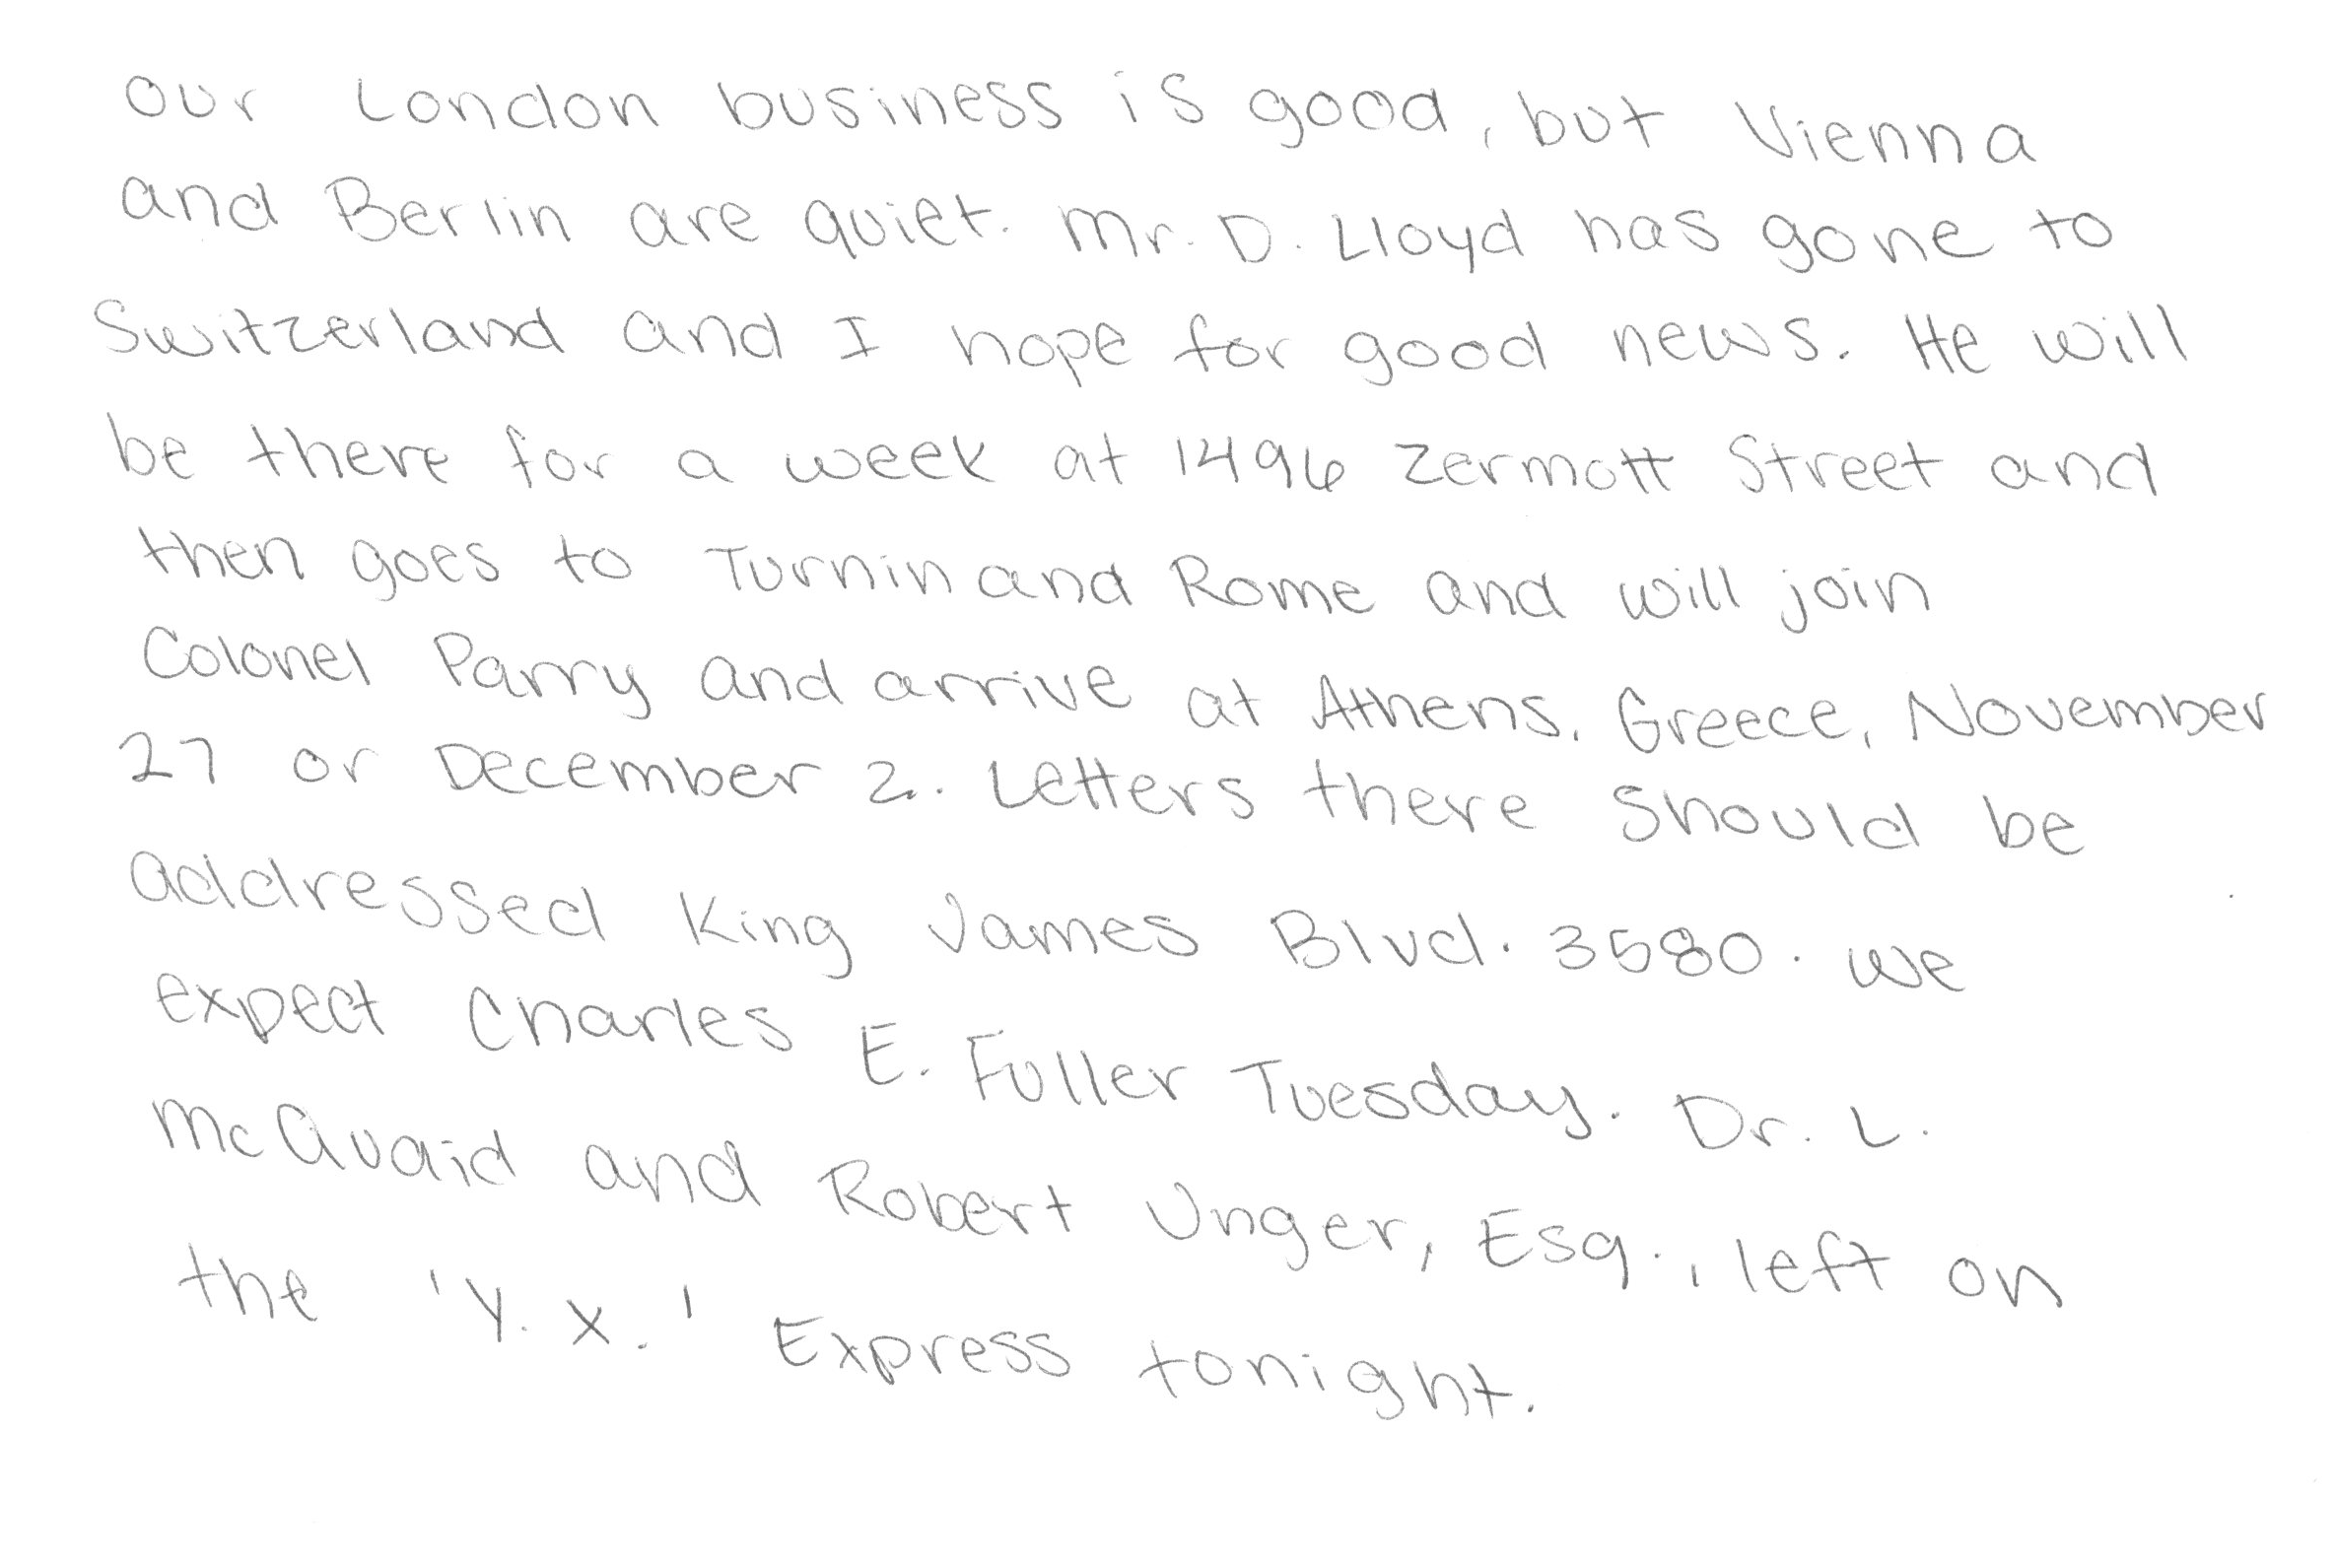 Our London business is good, but Vienna
and Berlin are quiet. Mr. D. Lloyd has gone to
Switzerland and I hope for good news. He will
be there for a week at 1496 Zermott Street and
then goes to Turnin and Rome and will join
Colonel Parry and arrive at Athens, Greece, November
27 or December 2. Letters there should be
addressed King James Blvd. 3580. We
expect Charles E. Fuller Tuesday. Dr. L.
McQuaid and Robert Unger, Esq., left on
the 'Y.X.' Express tonight.